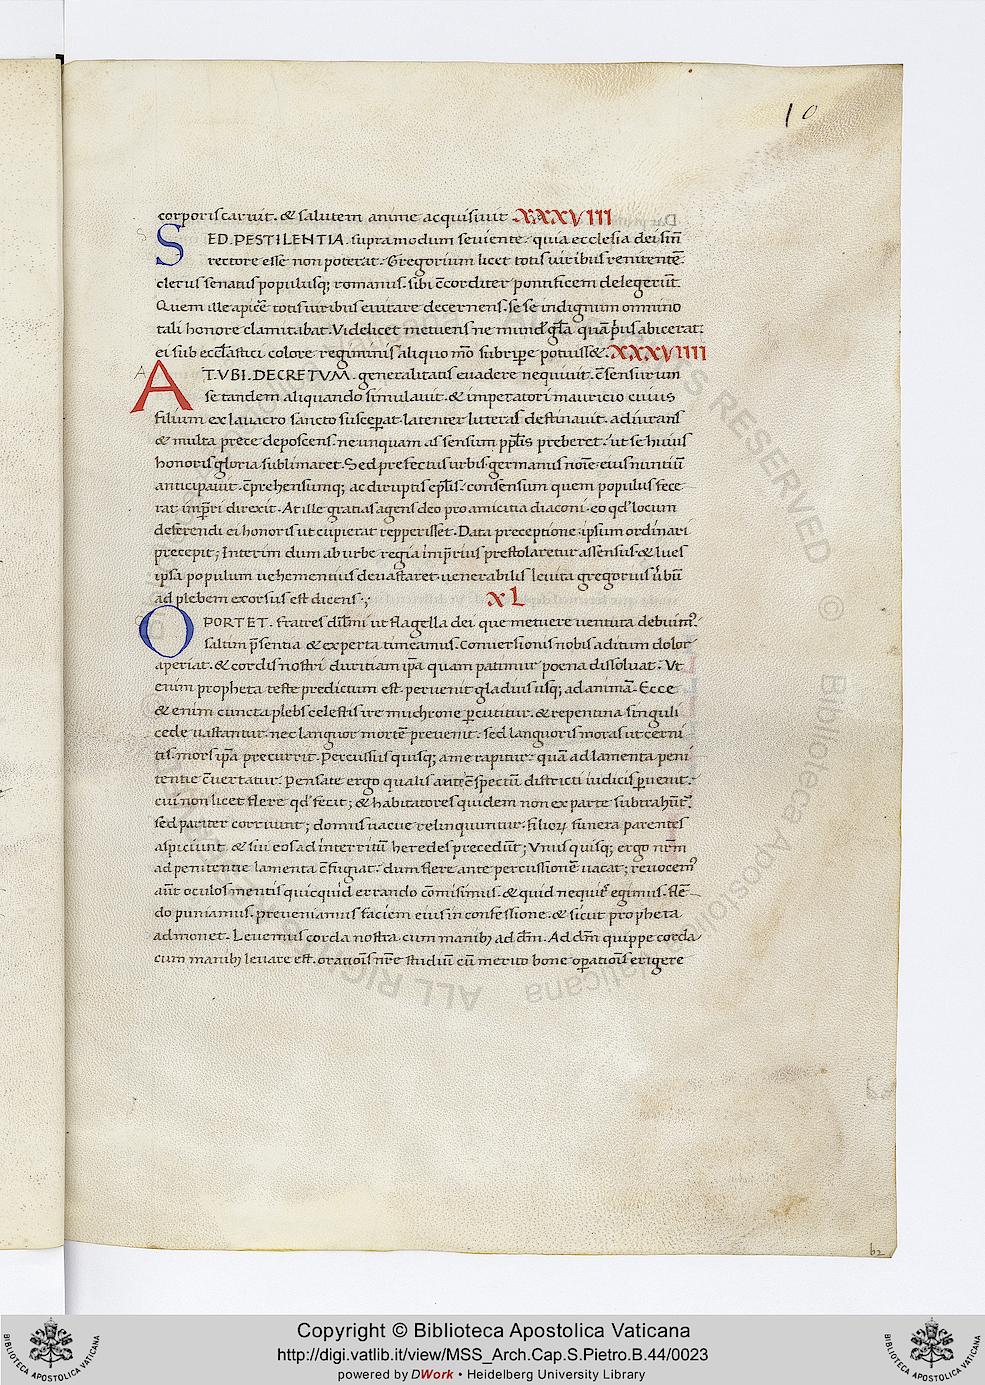 10
corporis caruit. & salutem anime acquisiuit .XXXVIII
SED.PESTILENTIA. supra modum seuiente. quia ecclesia dei sin̄
rectore esse non poterat. Gregorium licet totis uiribus renitentē.
clerus senatus populusq; romanus. sibi c̄corditer pontificem delegerūt.
Quem ille apicē totis uiribus euitare decernens. se se indignum omnino
tali honore clamitabat. Videlicet metuens ne mund̓ gl̄a quā p̓us abicerat.
ei sub eccl̄astici colore regiminis aliquo m̄o subripe potuiss&. XXXVIIII
AT.VBI.DECRETVM. generalitatis euadere nequiuit. c̄sensurum
se tandem aliquando simulauit. & imperatori mauricio cuius
filium ex lauacro sancto susceperat. latenter litteras destinauit. adiurans
& multa prece deposcens. ne unquam assensum pplīs preberet. ut se huius
honoris gloria sublimaret. Sed prefectus urbis. germanus noīe. eius nuntiū
anticipauit. c̄prehensumq; ac diruptis eplīs. consensum quem populus fece
rat imp̄ri direxit. At ille gratias agens deo pro amicitia diaconi. eo qd' locum
deferendi ei honoris ut cupierat repperiss&. Data preceptione. ipsum ordinari
precepit; Interim dum ab urbe regia imp̄rius prestolaretur assensus. & lues
ipsa populum uehementius deuastaret. uenerabilis leuita gregorius
ad plebem exorsus est dicens.; XL
OPORTET. fratres dil̄mi ut flagella dei que metuere uentura debuim̓.
saltim p̄sentia & experta timeamus. Conuersionis nobis aditum dolor
aperiat. & cordis nostri duritiam ip̄a quam patimur poena dissoluat. Vt
enim propheta teste predictum est. peruenit gladius usq; ad animā. Ecce
& enim cuncta plebs celestis ire muchrone pcutitur. & repentina singuli
cede uastantur. nec languor mortē preuenit. sed languoris moras ut cerni
tis. mors ip̄a precurrit. Percussus quisq; ante rapitur. quā ad lamenta peni
tentie c̄uertatur. Pensate ergo qualis ante c̄spectū districti iudicis puenit.
cui non licet flere qd' fecit; & habitatores quidem non ex parte subtrahūt̓.
sed pariter corruunt; domus uacue relinquuntur. filioꝝ funera parentes
aspiciunt & sui eos ad interitū heredes precedūt; Vnusquisq; ergo nr̄m
ad penitentie lamenta c̄fugiat. dum flere ante percussionē uacat; reuocem̓
aūt oculos mentis quicquid errando cōmisimus. & quid nequit̓ egimus. flē
do puniamus. preueniamus faciem eius in confessione. & sicut propheta
admonet. Leuemus corda nostra. cum manib; ad dm̄. Ad dm̄ quippe corda
cum manib; leuare est. orationis nr̄e studiū cū merito bone opationis erigere
b2
Copyright © Biblioteca Apostolica Vaticana
http://digi.vatlib.it/view/MSS_Arch.Cap.S.Pietro.B.44/0023
powered by DWork • Heidelberg University Library